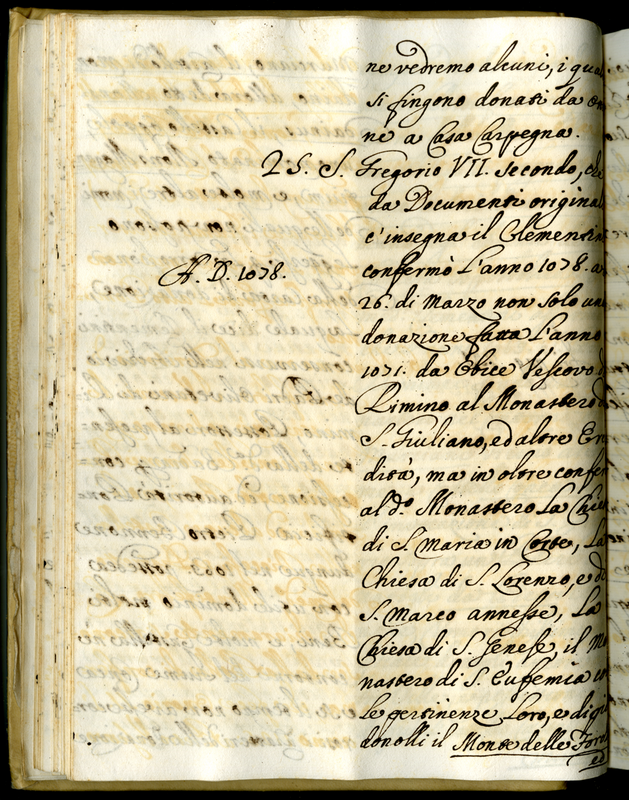 ne vedremo alcuni, i qua
si fingono donati da
ne a Casa Carpegna.
25. S. Gregorio VII. secondo, che
da Documenti original
c'insegna il Clementin
A. D. 1078.
confermò l'anno 1078. a
26. di Marzo non solo una
donazione fatta l'anno
1071. da Obice Vescovo d
Rimino al Monastero d
S. Giuliano, ed altre Ere
dità, ma in oltre confer
al do. Monastero La Chies
di S. Maria in Corte, La
Chiesa di S. Lorenzo, e di
S. Marco annesse, La
Chiesa di S. Genese, il Mo
nastero di S. Eufemia co
le pertinenze Loro, e di più
donolli il Monte delle Forche
ed